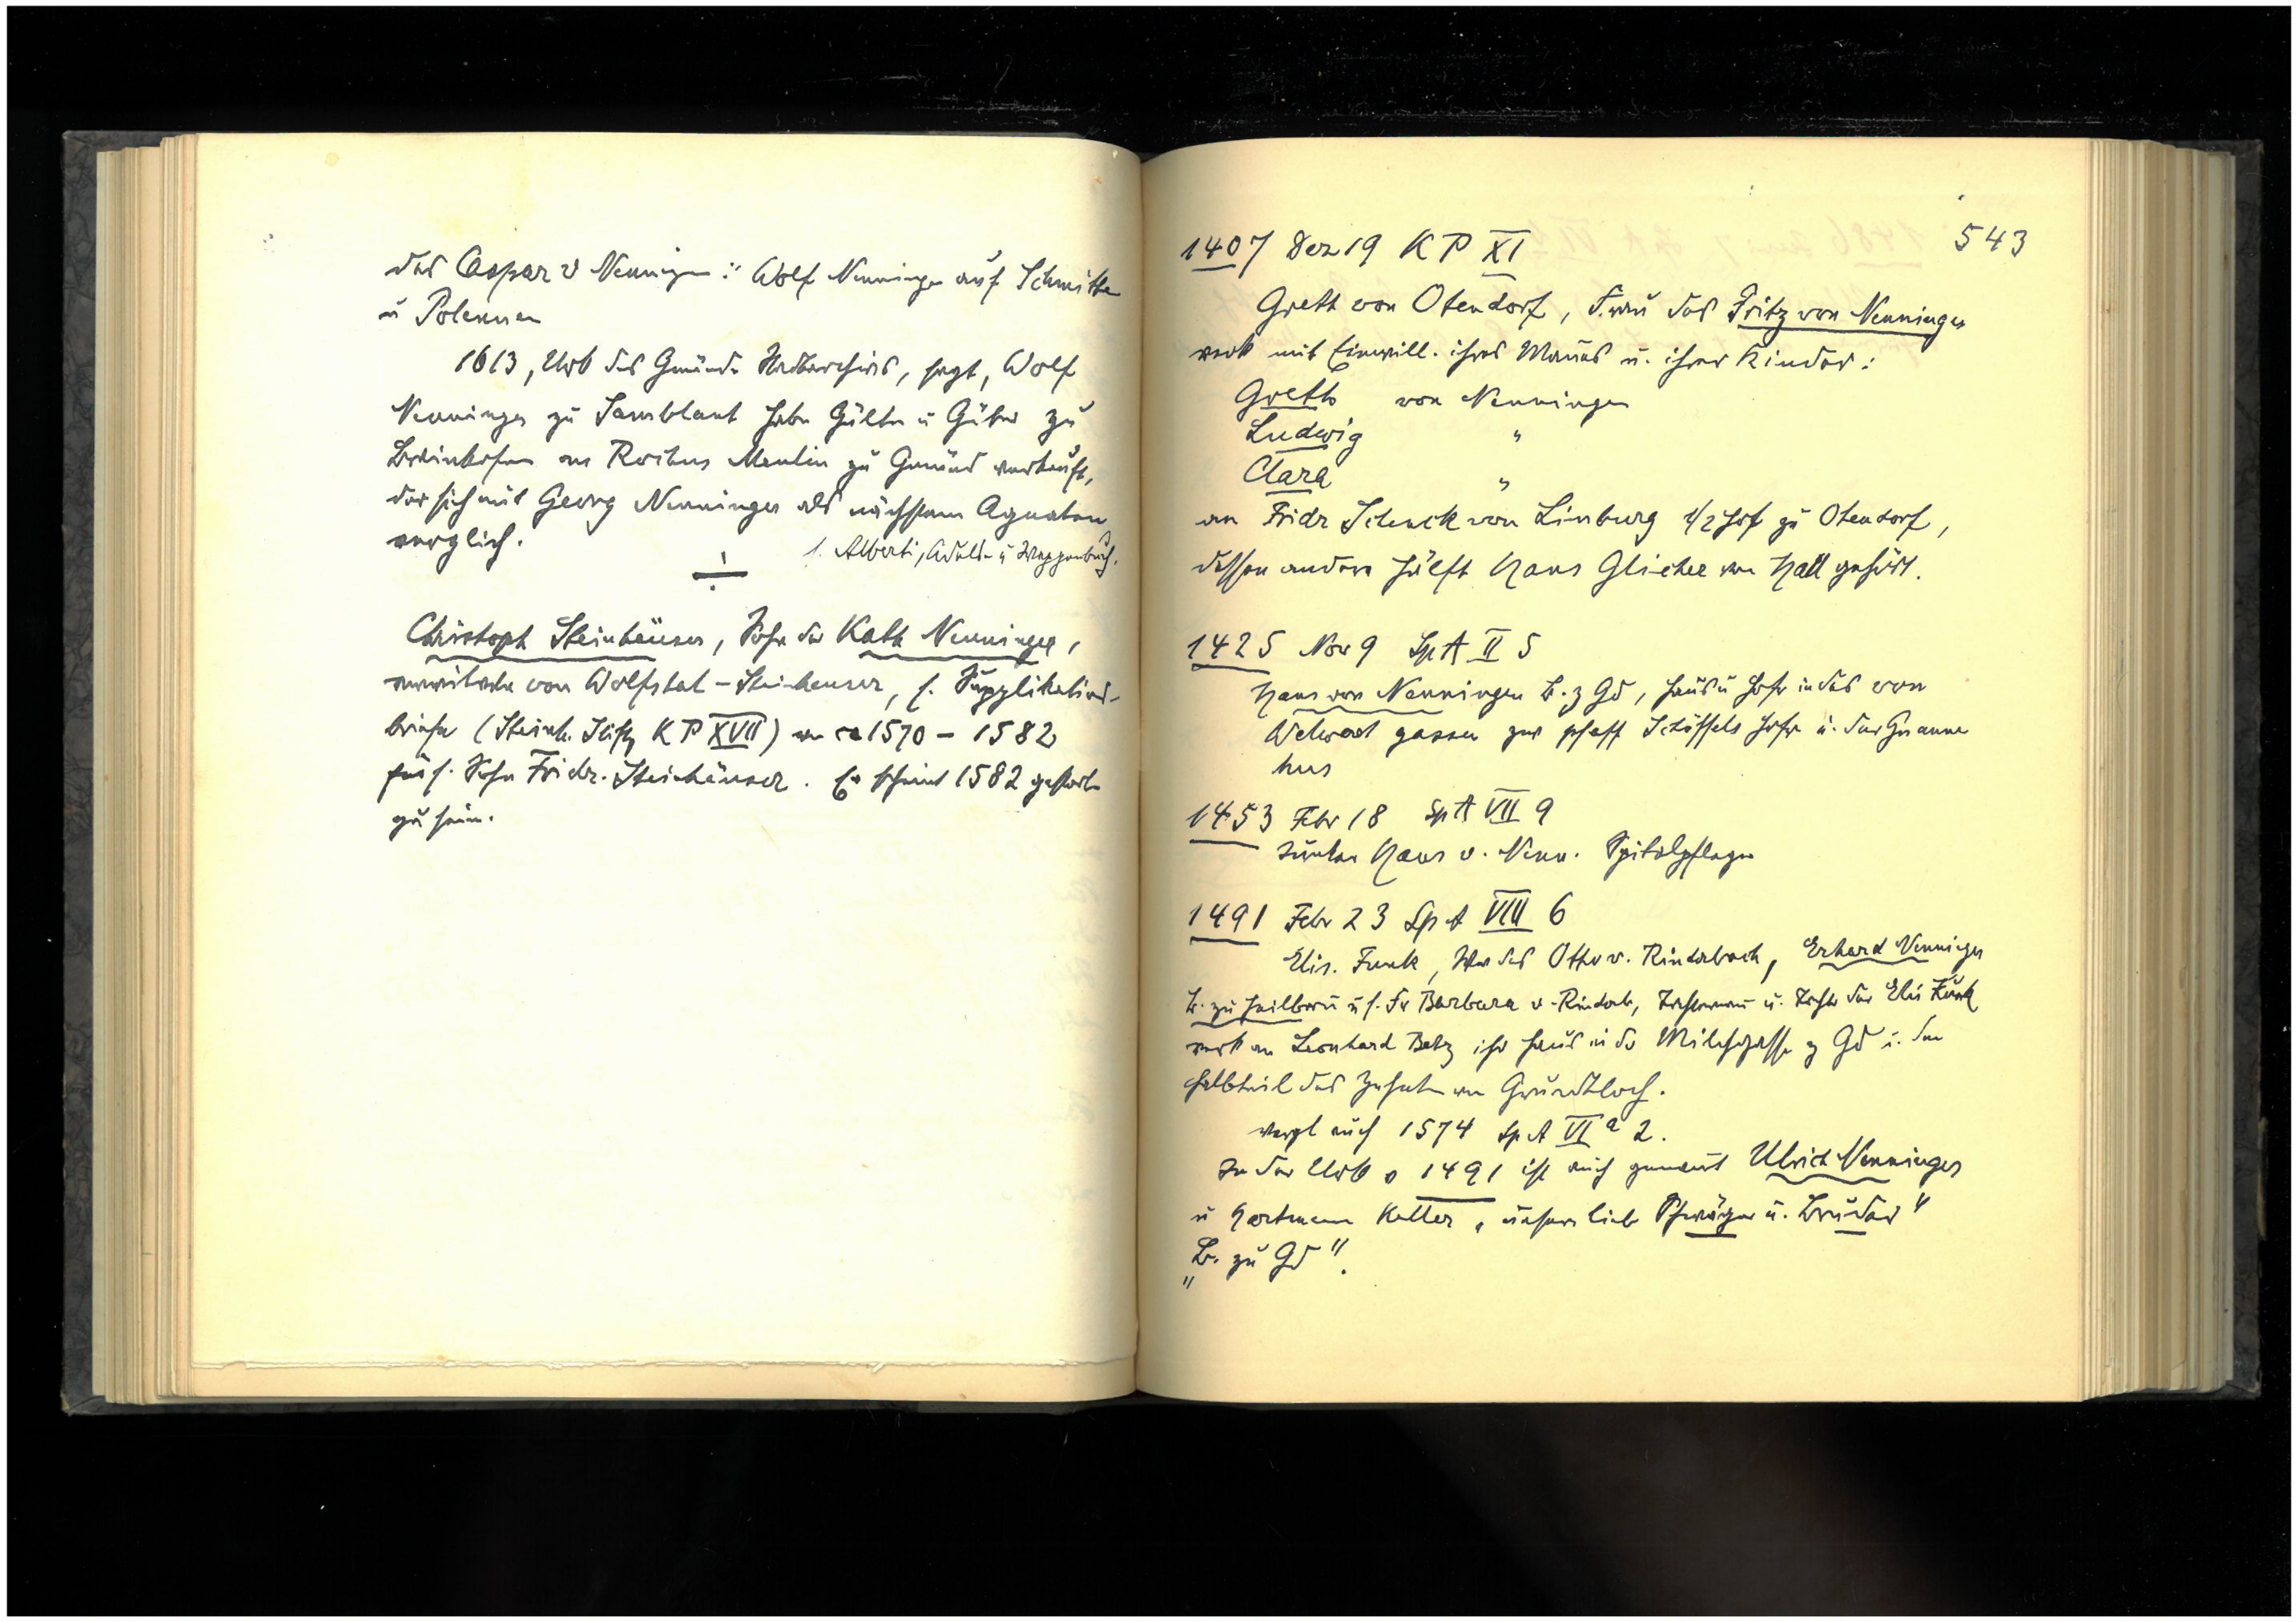 des Caspar v Nenningen: Wolf Nenninger auf Schmitten
u Polennen
1613, Urk des Gmünder Stadtarchivs, sagt, Wolf
Nenninger zu habe Gülten u Güter zu
Breinkofen an Rochus Meulin zu Gmünd verkauft,
der sich mit Georg Nenninger als nächstem Agnaten
verglich.
s. Alberti, Adels- u Wappenbuch.
Christoph Steinhäuser, Sohn der Kath Nenninger,
von Wolfstal-Steinheuser, s. Supplikations-
briefe (Steinh. Stiftg KP XVII) von ca 1570 - 1582
für s. Sohn Fridr. Steinhäuser. Er scheint 1582 gestorben
zu sein.
543
1407 Dez 19 KP XI
Greth von Otendorf, Frau des Fritz von Nenningen
verk mit Einwill. ihres Mannes u. ihrer Kinder:
Greth von Nenningen
Ludwig "
Clara "
an Fridr Schenck von Limburg 1/2 Hof zu Otendorf,
dessen andere Hälft Hans Glicher von Hall gehört.
1425 Nov 9 Sp A II 5
Hans von Nenningen B. z Gd, Haus u Hofr in des von
Welwart gassen zw pfaff Schöffels Hofr u. der
hus
1453 Febr 18 Sp A VII 9
Junker Hans v. Nenn. Spitalpfleger
1491 Febr 23 Sp A VIII 6
Elis. Funk, Ww des Otto v. Rinderbach, Erhard Nenninger
B. zu Heilbronn u s. Fr Barbara v. Rinderb, Tochtermann u. Tochter der Elis Funk
verk an Leonhard Betz ihr Haus in der Milchgasse z Gd u. den
Halbteil des Zehnten von Grundtloch.
vergl auch 1574 Sp A VI a 2.
In der Urk v 1491 ist auch genannt Ulrich Nenninger
u Hartmann Keller „unsern lieb Schwäger u. Bruder"
„B. zu Gd".